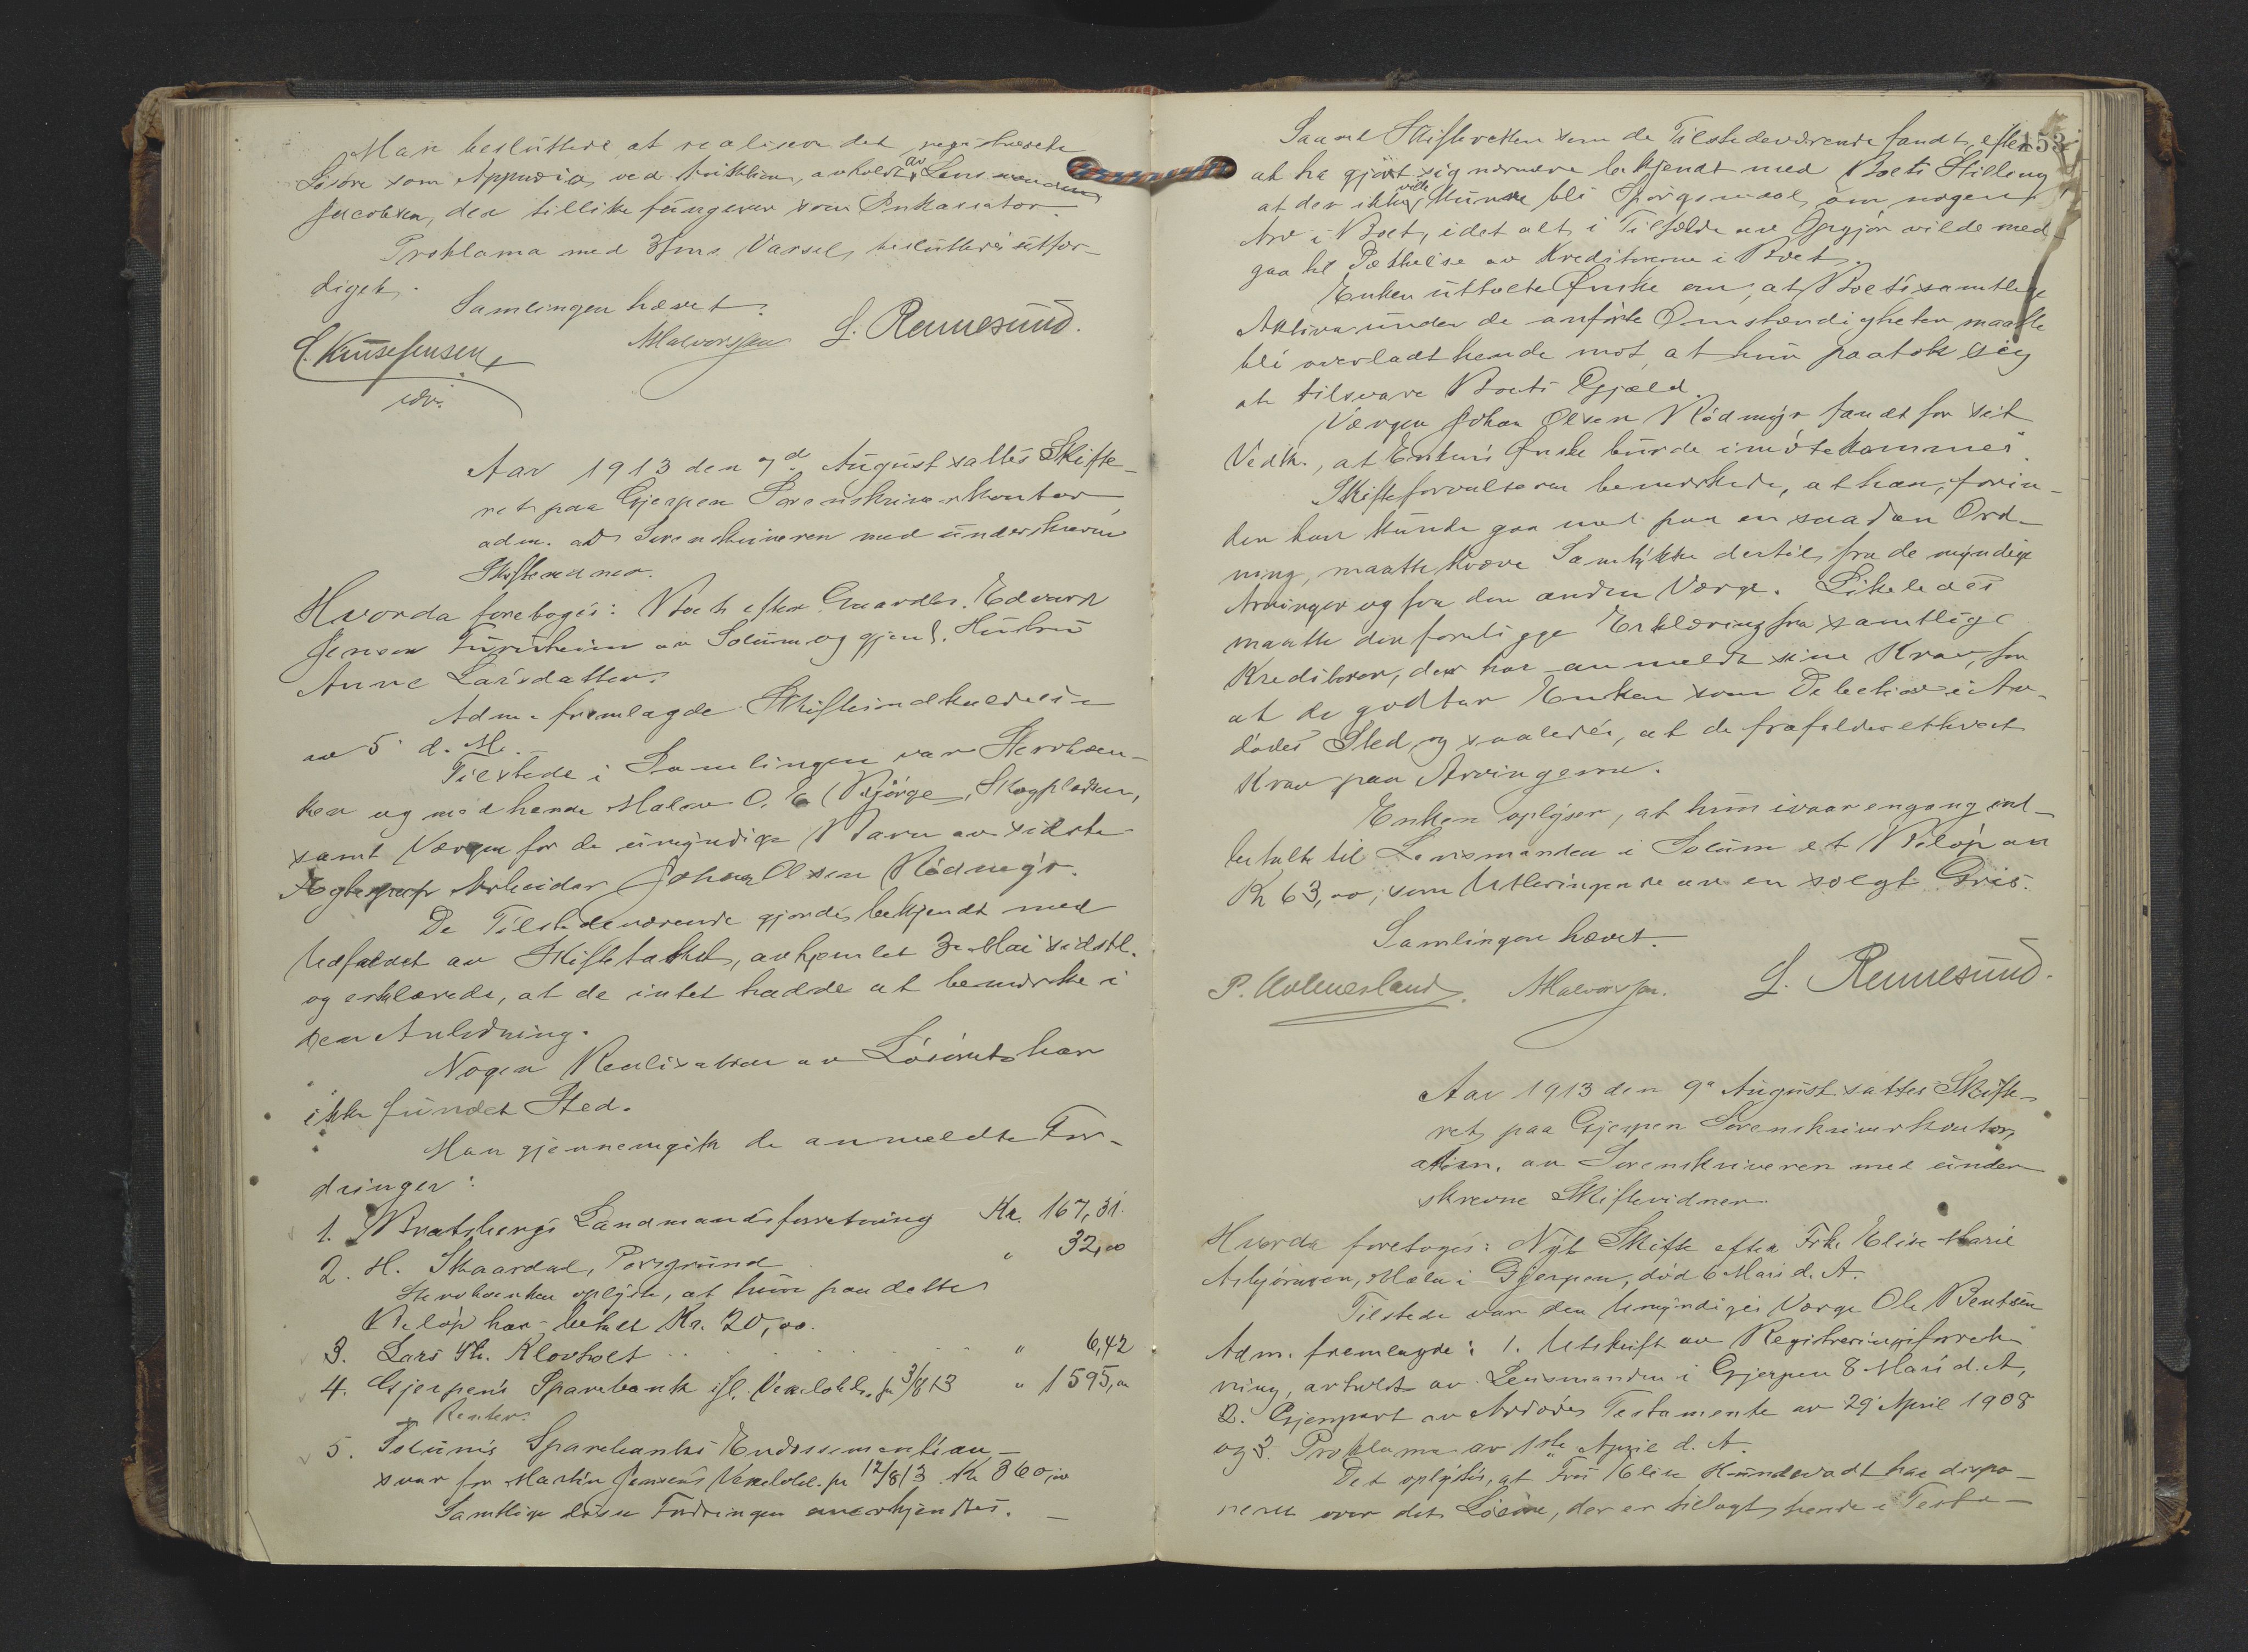 Man besluttede at realisere det registrerede
Løsøre som Appurio ved Auktion, avholdt av Lensmanden
Jacobsen, der tillike fungerer som Inkassator.
Proklama med 3 Mrs. Varsel, besluttedes utfær-
diget.
Samlingen hævet.
Halvorsen L. Rennesund.
cdv.
Aar 1913 den 7d August sattes Skifte-
ret paa Gjerpen Sorenskriverkontor
adm. av Sorenskriveren med underskrevne
Skiftevidner.
Hvorda foretoges: Boet efter Gaardbr. Edvard
Jensen av Solum og gjenl. Hustru
Anne Larsdatter.
Adm. fremlagde Skifteindkaldelse
av 5 d. M.
Tilstede i Samlingen var Stervboen-
ken og med hende Maler O. E. Bjørge, Skogpladsen,
samt Værgen for de umyndige Barn av sidste
Egteskap Arbeider Johan Olsen Rødmyr.
De Tilstedeværende gjordes bekjendt med
Utfaldet av Skiftetakst, avhjemlet 3 Mai sidstl.
og erklærede, at de intet hadde at bemerke i
den Anledning.
Nogen Realisation av Løsøret har
ikke fundet Sted.
Man gjennemgik de anmeldte For-
dringer:
1. Bratsbergs Landmandsforretning Kr. 167,31.
2. H. Skaardal, Porsgrund " 32,00
Stervboenken oplyste, at hun paa dette
Beløp har betalt Kr. 20,00.
3. Lars Th. Klovholt " 6,42
4. Gjerpens Sparebank ifl. Vexelobl. pr 3/8 13 " 1595,00
+ Renter.
5. Solums Sparebanks Endossementsan-
svar for Martin Jensens Vexelobl. pr 12/8 13 Kr 360,00
Samtlige disse Fordringer anerkjendtes.
153
Saavel Skifteretten som de Tilstedeværende fandt, efter
at ha gjort sig nærmere bekjendt med Boets Stilling
at der ikke vilde kunne bli Spørgsmaal om nogen
Arv i Boet, idet alt i Tilfælde av Opgjør vilde med-
gaa til Dækkelse av Kreditorerne i Boet.
Enken uttalte Ønske om, at Boets samtlige
Aktiva under de anførte Omstændigheter maatte
bli overladt hende mot, at hun paatok sig
at tilsvare Boets Gjæld.
Værgen Johan Olsen Rødmyr fandt for sit
Vedk., at Enkens Ønske burde imøtekommes.
Skifteforvalteren bemerkede, at han, forin-
den han kunde gaa med paa en saadan Ord-
ning, maatte kræve Samtykke dertil fra de myndige
Arvinger og fra den anden Værge. Likeledes
maatte der foreligge Erklæring fra samtlige
Kreditorer, der har anmeldt sine Krav, for
at de godtar Enken som Debitor i Av-
dødes Sted, og saaledes, at de frafalder ethvert
Krav paa Arvingerne.
Enken oplyser, at hun ivaar engang ind-
betalte til Lensmanden i Solum et Beløp av
Kr 63,00, som Utbringende av en solgt Gris.
Samlingen hævet.
P. Holmesland. Halvorsen. L. Rennesund.
Aar 1913 den 9de August sattes Skifte-
ret paa Gjerpen Sorenskriverkontor,
adm. av Sorenskriveren med under-
skrevne Skiftevidner.
Hvorda foretoges: Nyt Skifte efter Frk. Elise Marie
Asbjørnsen, Mæla i Gjerpen, død 6 Mars d. A.
Tilstede var den Umyndiges Værge Ole Bentsen
Adm. fremlagde: 1. Utskrift av Registreringsforret-
ning, avholdt av Lensmanden i Gjerpen 8 Mars d. A,
2. Gjenpart av Avdødes Testamente av 29 April 1908
og 3. Proklama av 1ste April d. A.
Det oplystes, at Fru Elise Hundevadt har dispo-
neret over det Løsøre, der er tillagt hende i Testa-